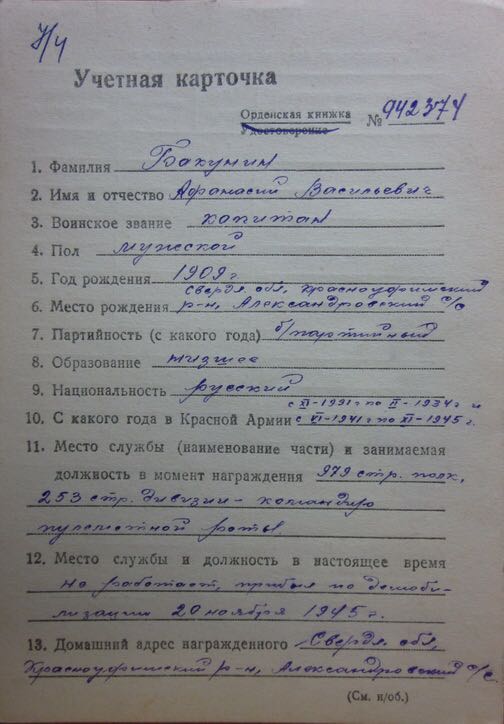 Н/ч
Учетная карточка
Орденская книжка
Удостоверение № 942374
1. Фамилия Бакунин
2. Имя и отчество Афанасий Васильевич
3. Воинское звание капитан
4. Пол мужской
5. Год рождения 1909 г
Свердл. обл, Красноуфимский
6. Место рождения р-н, Александровский с/с
7. Партийность (с какого года) б/партийный
8. Образование низшее
9. Национальность русский
с XI-1931 г по II-1934 г и
10. С какого года в Красной Армии с VI-1941 г по XI-1945 г.
11. Место службы (наименование части) и занимаемая
должность в момент награждения 979 стр. полк,
253 стр. дивизии - командир
пулеметной роты
12. Место службы и должность в настоящее время
Не работает, прибыл по демоби-
лизации 20 ноября 1945 г.
13. Домашний адрес награжденного Свердл. обл,
Красноуфимский р-н, Александровский с/с.
(См. н/об.)